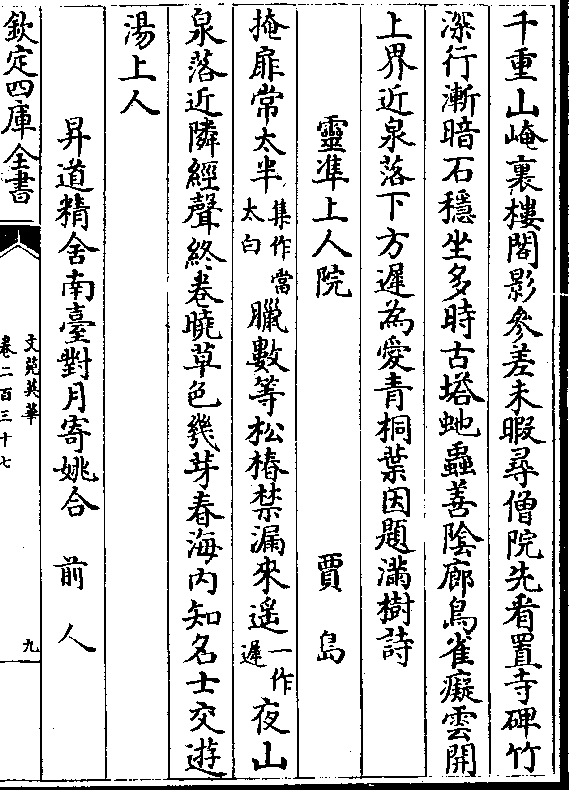 千重山崦裏樓閣影參差未暇尋僧院先看置寺碑竹
深行漸暗石穩坐多時古塔虵蟲善陰廊鳥雀癡雲開
上界近泉落下方遲為愛青桐葉因題滿樹詩
靈凖上人院 賈島
掩扉常太半集作當太白臘數等松椿禁漏來遥一作遲夜山
泉落近隣經聲終卷曉草色幾芽春海内知名士交遊
湯上人
昇道精舍南臺對月寄姚合 前人
欽定四庫全書
文苑英華
卷二百三十七
九